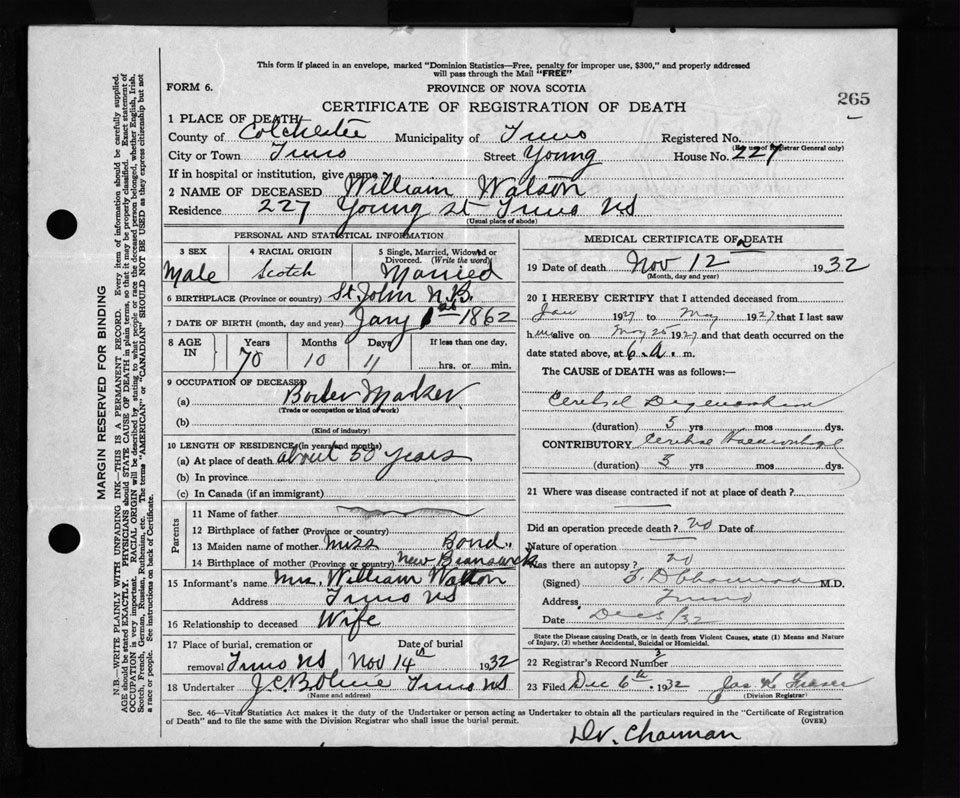 This form if placed in an envelope, marked "Dominion Statistics—Free, penalty for improper use, $300," and properly addressed
will pass through the Mail "FREE"
FORM 6.
PROVINCE OF NOVA SCOTIA
CERTIFICATE OF REGISTRATION OF DEATH
265
1 PLACE OF DEATH
County of Colchester Municipality of Truro Registered No.
(For use of Registrar General only)
City or Town Truro Street Young House No. 227
If in hospital or institution, give name
2 NAME OF DECEASED William Watson
Residence 227 Young St Truro NS
(Usual place of abode)
PERSONAL AND STATISTICAL INFORMATION
3 SEX 4 RACIAL ORIGIN 5 Single, Married, Widowed or Divorced. (Write the word)
Male Scotch Married
6 BIRTHPLACE (Province or country) St. John N.B.
7 DATE OF BIRTH (month, day and year) Jany 1st 1862
8 AGE IN Years Months Days If less than one day,
70 10 11 hrs. or min.
9 OCCUPATION OF DECEASED
(a) Boiler Marker
(Trade or occupation or kind of work)
(b)
(Kind of industry)
10 LENGTH OF RESIDENCE (in years and months)
(a) At place of death about 50 years
(b) In province
(c) In Canada (if an immigrant)
Parents
11 Name of father
12 Birthplace of father (Province or country)
13 Maiden name of mother Miss Bond.
14 Birthplace of mother (Province or country) New Brunswick
15 Informant's name Mrs. William Watson
Address Truro NS
16 Relationship to deceased Wife
17 Place of burial, cremation or Date of burial
removal Truro NS, Nov 14th 1932
18 Undertaker J.C.B. Truro NS
(Name and address)
MEDICAL CERTIFICATE OF DEATH
19 Date of death Nov 12 1932
(Month, day and year)
20 I HEREBY CERTIFY that I attended deceased from
Jan 1927 to May 1927 that I last saw
him alive on May 25 1927 and that death occurred on the
date stated above, at 6. a. m.
The CAUSE of DEATH was as follows:—
Degeneration
(duration) 5 yrs mos dys.
CONTRIBUTORY
(duration) 5 yrs mos dys.
21 Where was disease contracted if not at place of death?
Did an operation precede death? no Date of
Nature of operation
Was there an autopsy? no
(Signed) M.D.
Address Truro
Date Dec 5/32
State the Disease causing Death, or in death from Violent Causes, state (1) Means and Nature
of Injury, (2) whether Accidental, Suicidal or Homicidal.
22 Registrar's Record Number
23 Filed Dec 6th 1932 Jas K Fraser
(Division Registrar)
Sec. 46—Vital Statistics Act makes it the duty of the Undertaker or person acting as Undertaker to obtain all the particulars required in the "Certificate of Registration
of Death" and to file the same with the Division Registrar who shall issue the burial permit.
(OVER)
Dr. Chapman
MARGIN RESERVED FOR BINDING
N.B.—WRITE PLAINLY WITH UNFADING INK—THIS IS A PERMANENT RECORD. Every item of information should be carefully supplied.
AGE should be stated EXACTLY. PHYSICIANS should STATE CAUSE OF DEATH in plain terms, so that it may be properly classified. Exact statement of
OCCUPATION is very important. RACIAL ORIGIN will be described by stating to what people or race the deceased person belonged, whether English, Irish,
Scotch, French, German, Russian, Ruthenian, etc. The terms "AMERICAN" or "CANADIAN" SHOULD NOT BE USED as they express citizenship but not
a race or people. See instructions on back of Certificate.